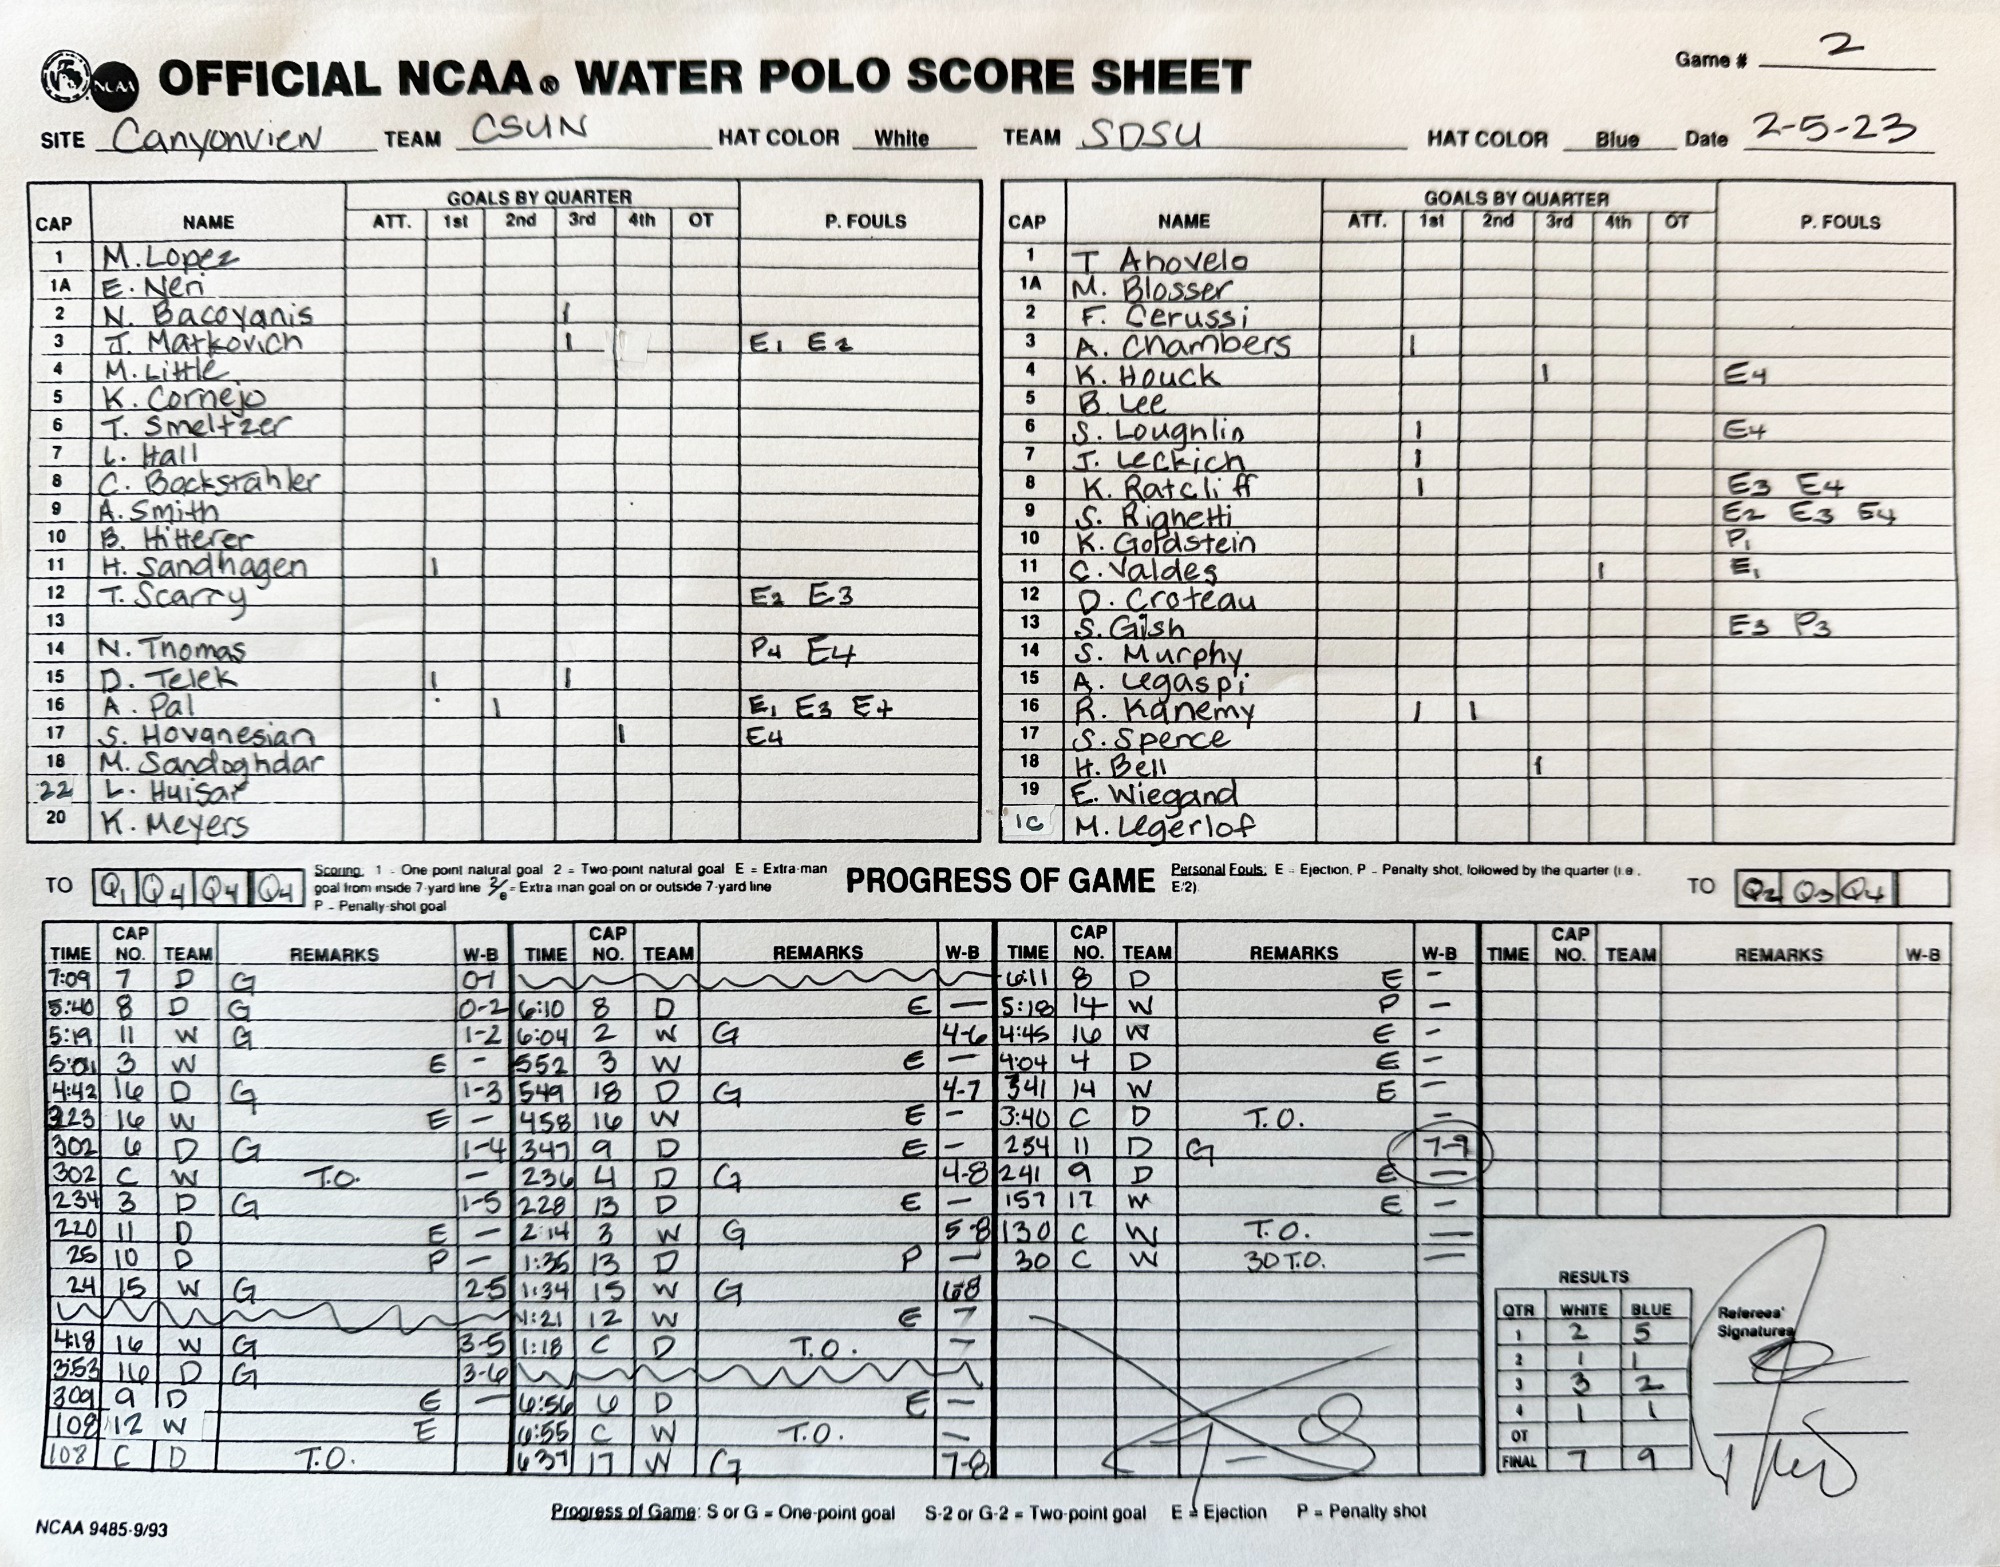 NCAA OFFICIAL NCAA® WATER POLO SCORE SHEET Game # 2
SITE Canyonview TEAM CSUN HAT COLOR White TEAM SDSU HAT COLOR Blue Date 2-5-23
GOALS BY QUARTER
CAP NAME ATT. 1st 2nd 3rd 4th OT P. FOULS
1 M. Lopez
1A E. Neri
2 N. Bacoyanis 1
3 J. Matkovich 1 E1 E2
4 M. Little
5 K. Cornejo
6 T. Smeltzer
7 L. Hall
8 C. Bockstahler
9 A. Smith
10 B. Hitterer
11 H. Sandhagen 1
12 T. Scarry E2 E3
13
14 N. Thomas P4 E4
15 D. Telek 1 1
16 A. Pal 1 E1 E3 E4
17 S. Hovanesian 1 E4
18 M. Sandoghdar
22 L. Huisar
20 K. Meyers
GOALS BY QUARTER
CAP NAME ATT. 1st 2nd 3rd 4th OT P. FOULS
1 T Ahovelo
1A M. Blosser
2 F. Cerussi
3 A. Chambers 1
4 K. Houck 1 E4
5 B. Lee
6 S. Loughlin 1 E4
7 J. Leckich 1
8 K. Ratcliff 1 E3 E4
9 S. Righetti E2 E3 E4
10 K. Goldstein P1
11 C. Valdes 1 E1
12 D. Croteau
13 S. Gish E3 P3
14 S. Murphy
15 A. Legaspi
16 R. Kanemy 1 1
17 S. Spence
18 H. Bell 1
19 E. Wiegand
1C M. Legerlof
TO Q1 Q4 Q4 Q4
Scoring: 1 - One point natural goal 2 = Two-point natural goal E = Extra-man
goal from inside 7-yard line 2/e = Extra man goal on or outside 7-yard line
P - Penalty-shot goal
PROGRESS OF GAME
Personal Fouls: E - Ejection, P - Penalty shot, followed by the quarter (i.e.,
E/2).
TO Q2 Q3 Q4
TIME CAP NO. TEAM REMARKS W-B
7:09 7 D G 0-1
5:40 8 D G 0-2
5:19 11 W G 1-2
5:01 3 W E -
4:42 16 D G 1-3
323 16 W E -
302 6 D G 1-4
302 C W T.O. -
234 3 D G 1-5
220 11 D E -
25 10 D P -
24 15 W G 2-5
4:18 16 W G 3-5
3:53 16 D G 3-6
309 9 D E -
108 12 W E
108 C D T.O.
TIME CAP NO. TEAM REMARKS W-B
6:10 8 D E -
6:04 2 W G 4-6
552 3 W E -
549 18 D G 4-7
458 16 W E -
347 9 D E -
236 4 D G 4-8
228 13 D E -
2:14 3 W G 5-8
1:35 13 D P -
1:34 15 W G 6-8
1:21 12 W E -
1:18 C D T.O. -
6:56 6 D E -
6:55 C W T.O. -
637 17 W G 7-8
TIME CAP NO. TEAM REMARKS W-B
6:11 8 D E -
5:18 14 W P -
4:45 16 W E -
4:04 4 D E -
341 14 W E -
3:40 C D T.O. -
254 11 D G 7-9
241 9 D E -
157 17 W E -
130 C W T.O. -
30 C W 30 T.O. -
7-9
TIME CAP NO. TEAM REMARKS W-B
RESULTS
QTR WHITE BLUE
1 2 5
2 1 1
3 3 2
4 1 1
OT
FINAL 7 9
Referees'
Signatures
Progress of Game: S or G = One-point goal S-2 or G-2 = Two-point goal E = Ejection P = Penalty shot
NCAA 9485-9/93